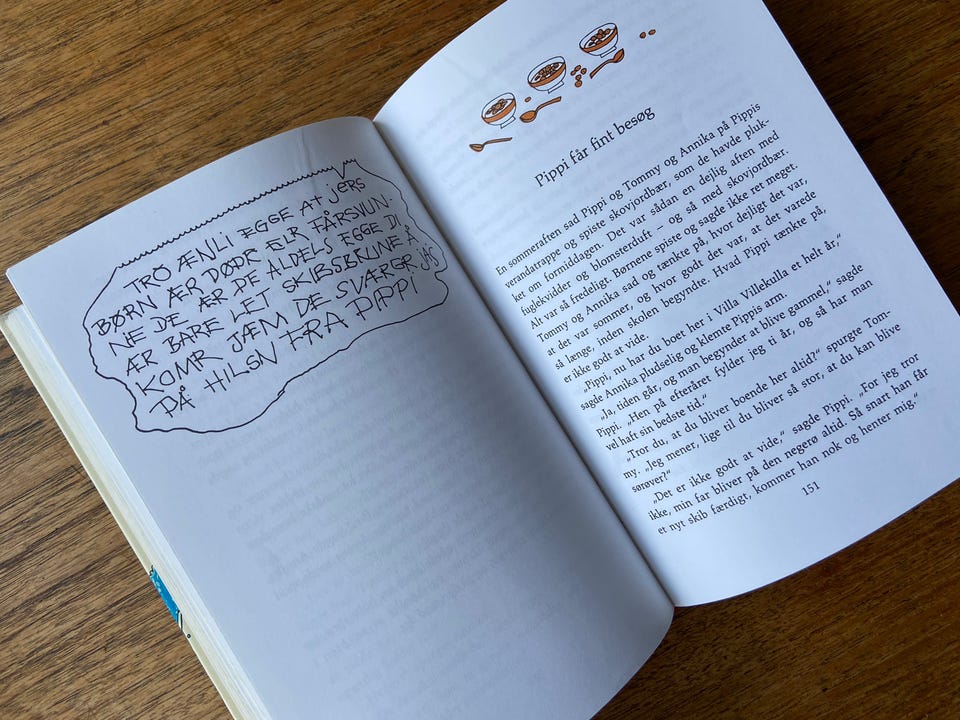 TRO ÆNLI EGGE At jERS
BØRN ÆR DØDE ÆLR FÅRSVUN-
NE DE ÆR DE ALDELS EGGE DI
ÆR BARE LET SKIBSBRUNE Å
KOMR JÆM DE SVÆRGR JAJ
PÅ HILSN FRA PIPPI
Pippi får fint besøg
En sommeraften sad Pippi og Tommy og Annika på Pippis
verandatrappe og spiste skovjordbær, som de havde pluk-
ket om formiddagen. Det var sådan en dejlig aften med
fuglekvidder og blomsterduft – og så med skovjordbær.
Alt var så fredeligt. Børnene spiste og sagde ikke ret meget.
Tommy og Annika sad og tænkte på, hvor dejligt det var,
at det var sommer, og hvor godt det var, at det varede
så længe, inden skolen begyndte. Hvad Pippi tænkte på,
er ikke godt at vide.
„Pippi, nu har du boet her i Villa Villekulla et helt år,“
sagde Annika pludselig og klemte Pippis arm.
„Ja, tiden går, og man begynder at blive gammel,“ sagde
Pippi. „Hen på efteråret fylder jeg ti år, og så har man
vel haft sin bedste tid.“
„Tror du, at du bliver boende her altid?“ spurgte Tom-
my. „Jeg mener, lige til du bliver så stor, at du kan blive
sørøver?“
„Det er ikke godt at vide,“ sagde Pippi. „For jeg tror
ikke, min far bliver på den negerø altid. Så snart han får
et nyt skib færdigt, kommer han nok og henter mig.“
151